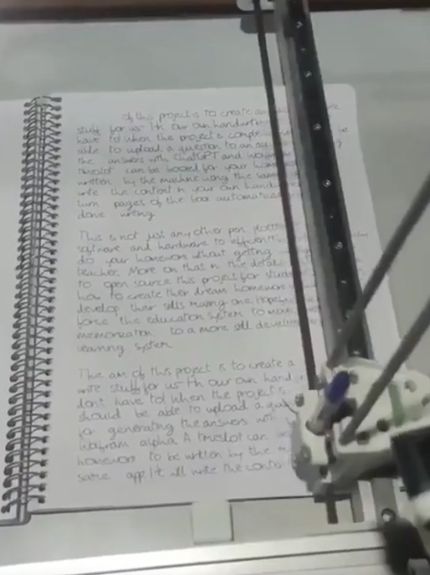 of this project is to create an
stuff for us in our own handwriti
have to! when the project is comple be
able to upload a question to an a
the answers with ChatGPT and wolfram
timeslot can be booked for your home
written by the machine using the same
write the content in your own handw
turn pages of the book automatica
done writing
This is not just any other pen plotte
software and hardware to
do your homework without getting
teacher. More on that in the detai
to open source this project for stude
how to create their dream homework
develop their skills making one. hopef
force the education system to move
memorization to a more skill develo
learning system
The aim of this project is to create a
write stuff for us in our own hand
dont have to! when the project is
should be able to upload a ques
for generating the answers wit
wolfram alpha. A timeslot can
homework to be written by the m
same app. It ll write the conte